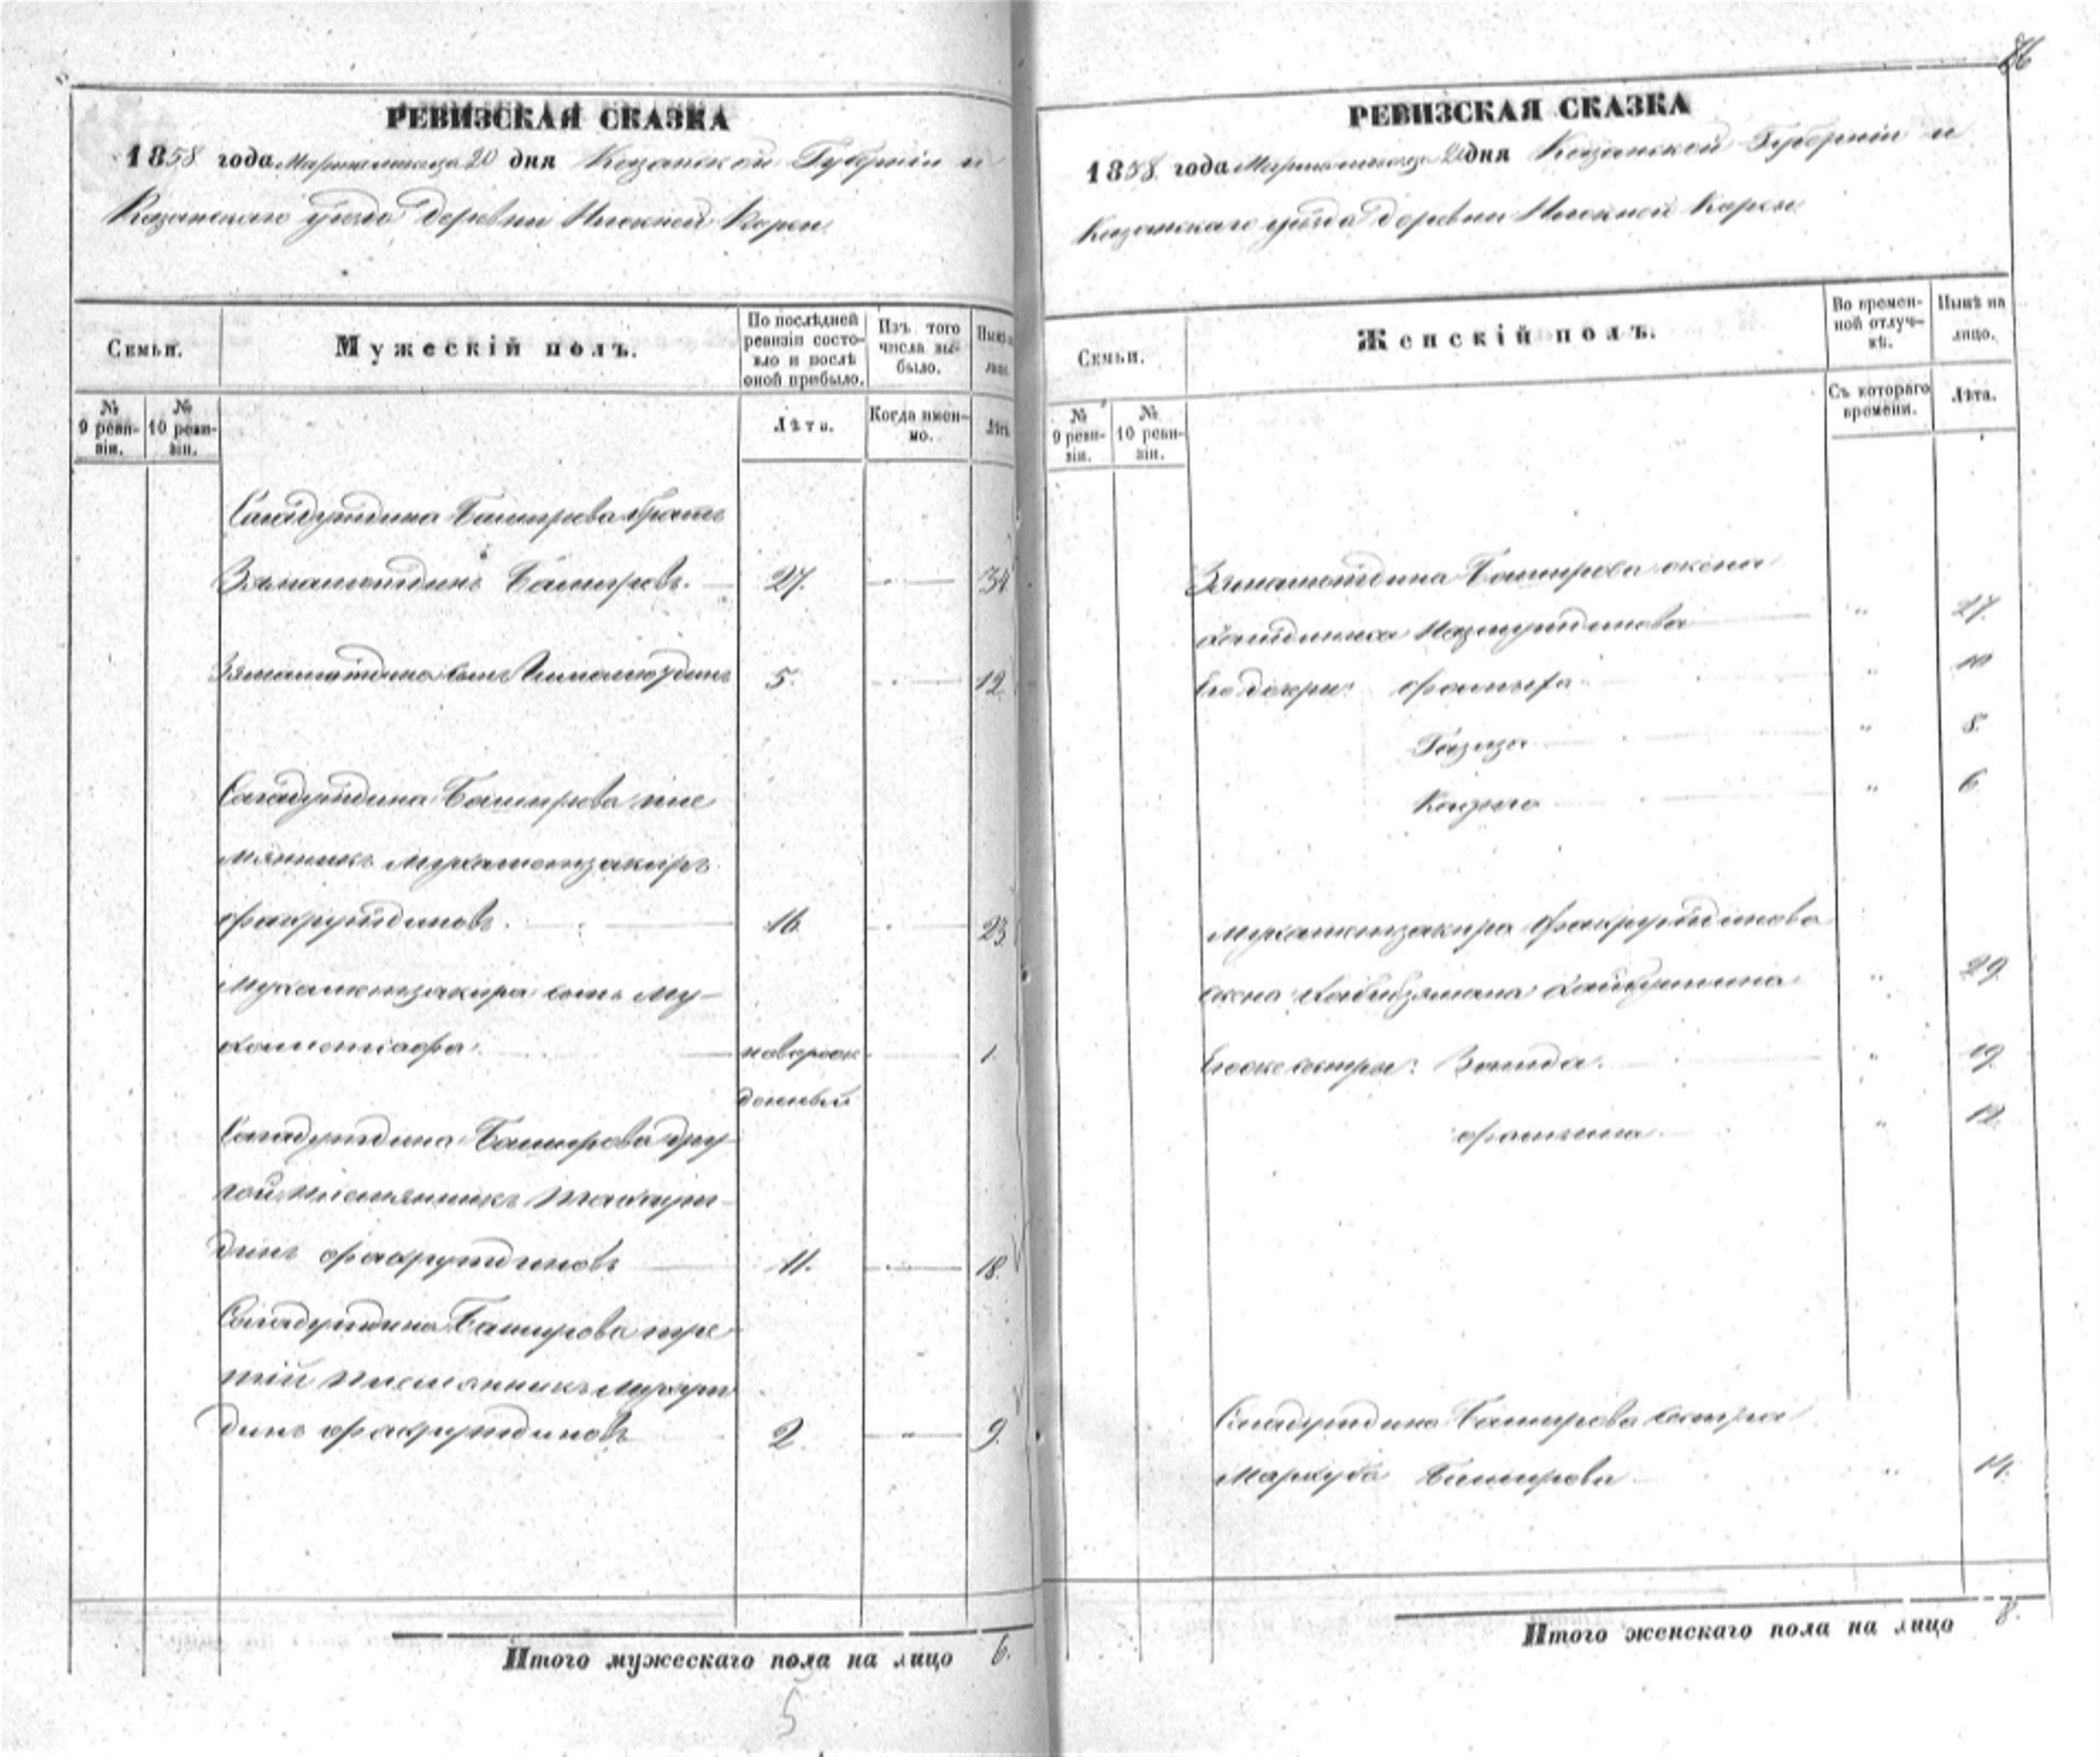 86
РЕВИЗСКАЯ СКАЗКА
1858 года Марта месяца 20 дня Казанской Губернiи и
Казанскаго уѣзда деревни Нижней Корсы
Семьи.
Мужескiй полъ.
По послѣдней ревизiи состояло и послѣ оной прибыло.
Изъ того числа выбыло.
Нынѣ на лицо.
№ 9 ревизiи.
№ 10 ревизiи.
Лѣта.
Когда именно.
Лѣта
Сагадутдина Баширова братъ
Замалютдинъ Башировъ. 27. 34
Замалютдина сынъ 5. 12
Сагадутдина Баширова пле
мянникъ Мухаметзакиръ
Фахрутдиновъ. 16. 23
Мухаметзакира сынъ Му-
хаметсафа. новорож 1.
денный
Сагадутдина Баширова дру-
гой племянникъ
динъ Фахрутдиновъ 11. 18.
Сагадутдина Баширова тре
тiй племянникъ
динъ Фахрутдиновъ 2. 9.
Итого мужескаго пола на лицо 6.
5
РЕВИЗСКАЯ СКАЗКА
1858 года Марта месяца 20 дня Казанской Губернiи и
Казанскаго уѣзда деревни Нижней Корсы
Семьи.
Женскiй полъ.
Во временной отлучкѣ.
Нынѣ на лицо.
№ 9 ревизiи.
№ 10 ревизiи.
Съ котораго времени.
Лѣта.
Замалютдина Баширова жена
" 27.
Его дочери: " 10
Газиза " 8.
" 6
Мухаметзакира Фахрутдинова
жена Хабибзямала Хайбуллина " 29.
Егоже сестры: " 19.
" 12.
Сагадутдина Баширова сестра
Мархуба Баширова " 14.
Итого женскаго пола на лицо 8.